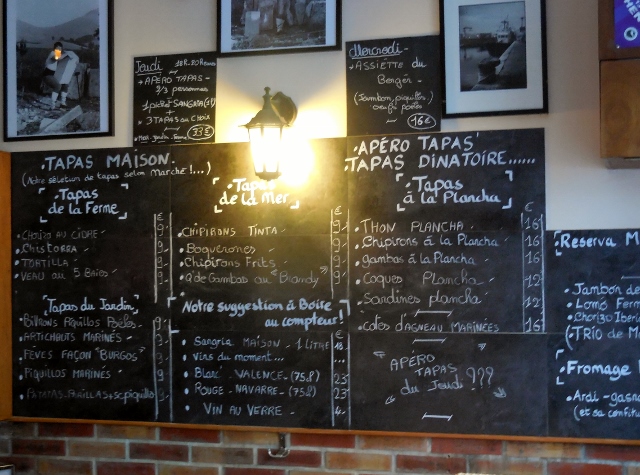 Jeudi
+ APÉRO TAPAS -
2/3 personnes
+ 3 TAPAS au Choix
23€
Mercredi -
+ ASSIETTE du
Berger -
(Jambon, piquillos,
16€
TAPAS MAISON
(Notre sélection de tapas selon Marché!...)
Tapas
de la Ferme
CHORIZO AU CIDRE 9.
CHISTORRA 9.
TORTILLA 9.
VEAU au 5 Baies 9.
Tapas du Jardin
ARTICHAUTS MARINÉS 9.
FEVES FAÇON "BURGOS" 9.
PIQUILLOS MARINÉS 9.
Tapas
de la Mer
€
CHIPIRONS TINTA 9.
Boquerones 9.
Chipirons Frits 9.
Q. de Gambas au "Blandy" 9.
Notre suggestion à Boire
au compteur!
Sangria MAISON - 1 LITRE
Vins du moment... ...
Blanc - VALENCE - (75cl) 23
ROUGE - NAVARRE - (75cl) 23
VIN AU VERRE - 4.
APÉRO TAPAS
TAPAS DINATOIRE......
Tapas
à la Plancha
€
THON PLANCHA 16
Chipirons à la Plancha 16
Gambas à la Plancha 16
Coques Plancha 12
Sardines plancha 12
Cotes d'AGNEAU MARINÉES 16
" APÉRO
TAPAS
du Jeudi " ???
Reserva
Jambon de
Lomo
Chorizo
(TRIO de
Fromage
Ardi - gasna
(et sa